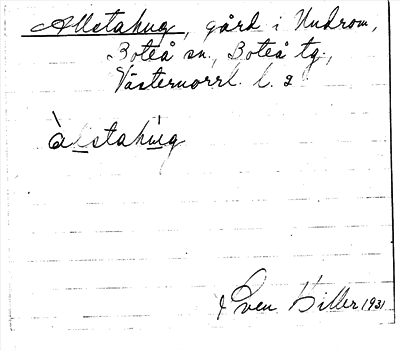 Allstahug, gård i Undrom,
Boteå sn., Boteå tg.,
Västernorrl. l. 2
àlstahug
Sven Hiller 1931